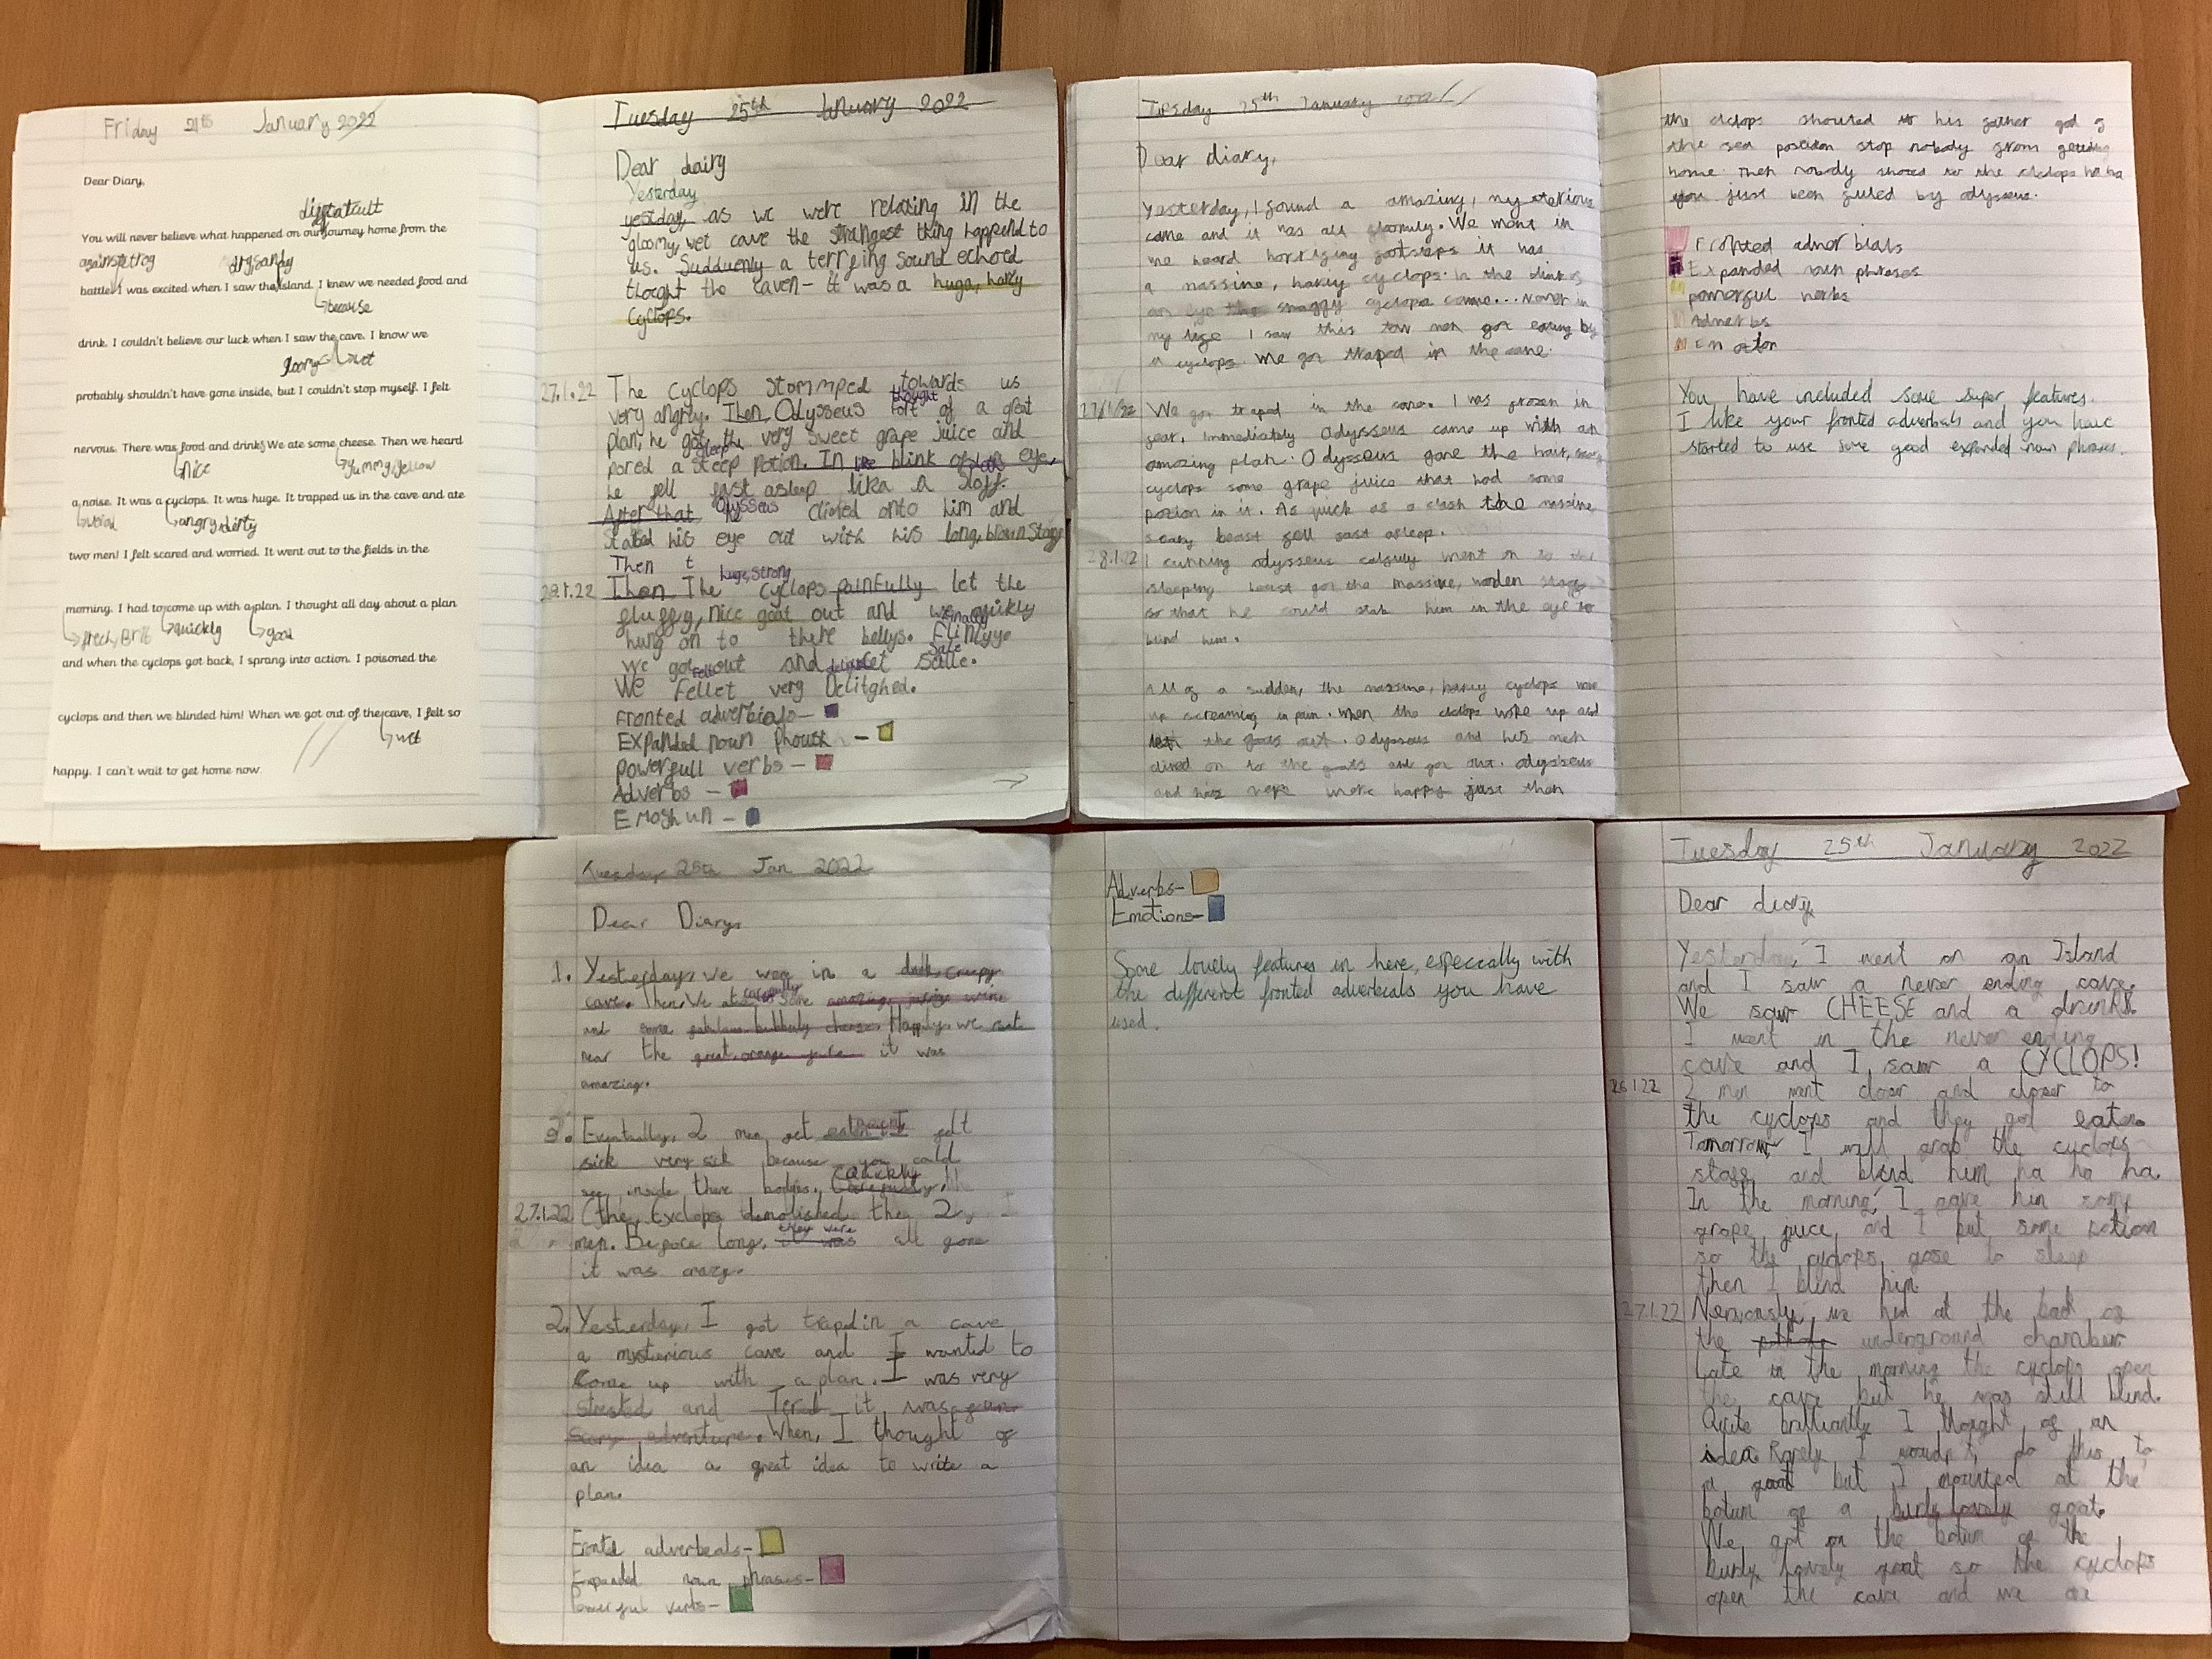 Friday 21th January 2022
Dear Diary,
You will never believe what happened on our journey home from the
battle. I was excited when I saw the island. I knew we needed food and
because
drink. I couldn't believe our luck when I saw the cave. I know we
gloomy wet
probably shouldn't have gone inside, but I couldn't stop myself. I felt
nervous. There was food and drink. We ate some cheese. Then we heard
nice yummy yellow
a noise. It was a cyclops. It was huge. It trapped us in the cave and ate
angry dirty
two men! I felt scared and worried. It went out to the fields in the
morning. I had to come up with a plan. I thought all day about a plan
quickly good
and when the cyclops got back, I sprang into action. I poisoned the
cyclops and then we blinded him! When we got out of the cave, I felt so
wet
happy. I can't wait to get home now.
Tuesday 25th January 2022
Dear dairy
Yesterday
yestday, as we were relaxing in the
gloomy, wet cave the strangest thing happend to
us. Suddvenly a terrfing sound echoed
thoght the caven - it was a huga, hairy
cyclops.
27.1.22 The cyclops stommped towards us
thought
very angrly. Then, Odysseus of a great
plan, he got the very sweet grape juice and
sleep
pored a steep potion. In the blink of an eye,
he fell fast asleep lika a
Odysseus
After that, he climed onto him and
his eye out with his long, brown
Then t
huge, strong
28.1.22 Then The cyclops painfully let the
fluffy, nice goat out and we quickly
finally
hung on to there bellys.
safe
we got out and
We fellet very Delitghed.
Fronted adverbials -
Expanded noun
powerfull verbs -
Adverbs -
Emoshun -
Tuesday 25th January
Dear diary,
Yesterday, I found a amazing, mysterious
cave and it was all gloomily. We went in
we heard horrifying footsteps it was
a massive, hairy cyclops. In the blink of
an eye the cyclops came... Never in
my life I saw this tow men got eating by
a cyclops. We got traped in the cave.
27/1/22 We got traped in the cave. I was frozen in
fear. Immediately Odysseus came up with an
amazing plan. Odysseus gave the
cyclops some grape juice that had some
potion in it. As quick as a the massive,
scary beast fell fast asleep.
28.1.22 I cunning odysseus went on to the
sleeping beast got the massive, woden
so that he could stab him in the eye to
blind him.
All of a sudden, the massive, hairy cyclops woke
up screaming in pain. When the cyclops woke up and
let the goats out. Odysseus and his men
climed on to the goats and got out. Odysseus
and his were happy just then
the ciclops shouted to his father god of
the sea poseidon stop nobody from getting
home. Then nobody shoted to the ciclops ha ha
you just been fuled by odysseus.
Fronted
Expanded noun phrases
powerful verbs
Adverbs
You have included some super features.
I like your fronted adverbials and you have
started to use some good expanded noun phrases.
Tuesday 25th Jan 2022
Dear Diary,
1. Yesterday, we were in a dark, creepy
carefully
cave. Then, We ate some amazing, juicy wine
and some cheese. Happily, we
near the it was
amazing.
3. Eventually, 2 men get eaten I felt
sick very sick because you could
Quickly
see inside there bodies. Carefully,
27.1.22 (the Cyclops demolished they 2
they were
men. Before long, it was all gone
it was crazy.
2. Yesterday, I got traped in a cave
a mysterious cave and I wanted to
Come up with a plan. I was very
stressed and it was
scary adventure. When, I thought of
an idea a great idea to write a
plan.
adverbeals-
Expanded noun phrases-
Powerful verbs-
Adverbs-
Emotions-
Some lovely features in here, especially with
the different fronted adverbeals you have
used.
Tuesday 25th January 2022
Dear diary,
Yesterday, I went on an Island
and I saw a never ending cave.
We saw CHEESE and a drink.
I went in the never ending
cave and I saw a CYCLOPS!
26.1.22 2 men went closer and closer to
the cyclops and they got eaten.
Tomorrow I will grab the cyclops
staff and blind him ha ha ha.
In the morning, I gave him some
grape juice, and I put some potion
so the cyclops gose to sleep
then I blind him.
27.1.22 Nervously, we hid at the back of
the underground chamber
Late in the morning the cyclops open
the cave but he was still blind.
Quite brilliantly I thought of an
idea. Rarely I woudn't do this to
a goat but I mounted at the
botum of a burly, lovely goat.
We got on the botum of the
burly, lovely goat so the cyclops
open the cave and we are